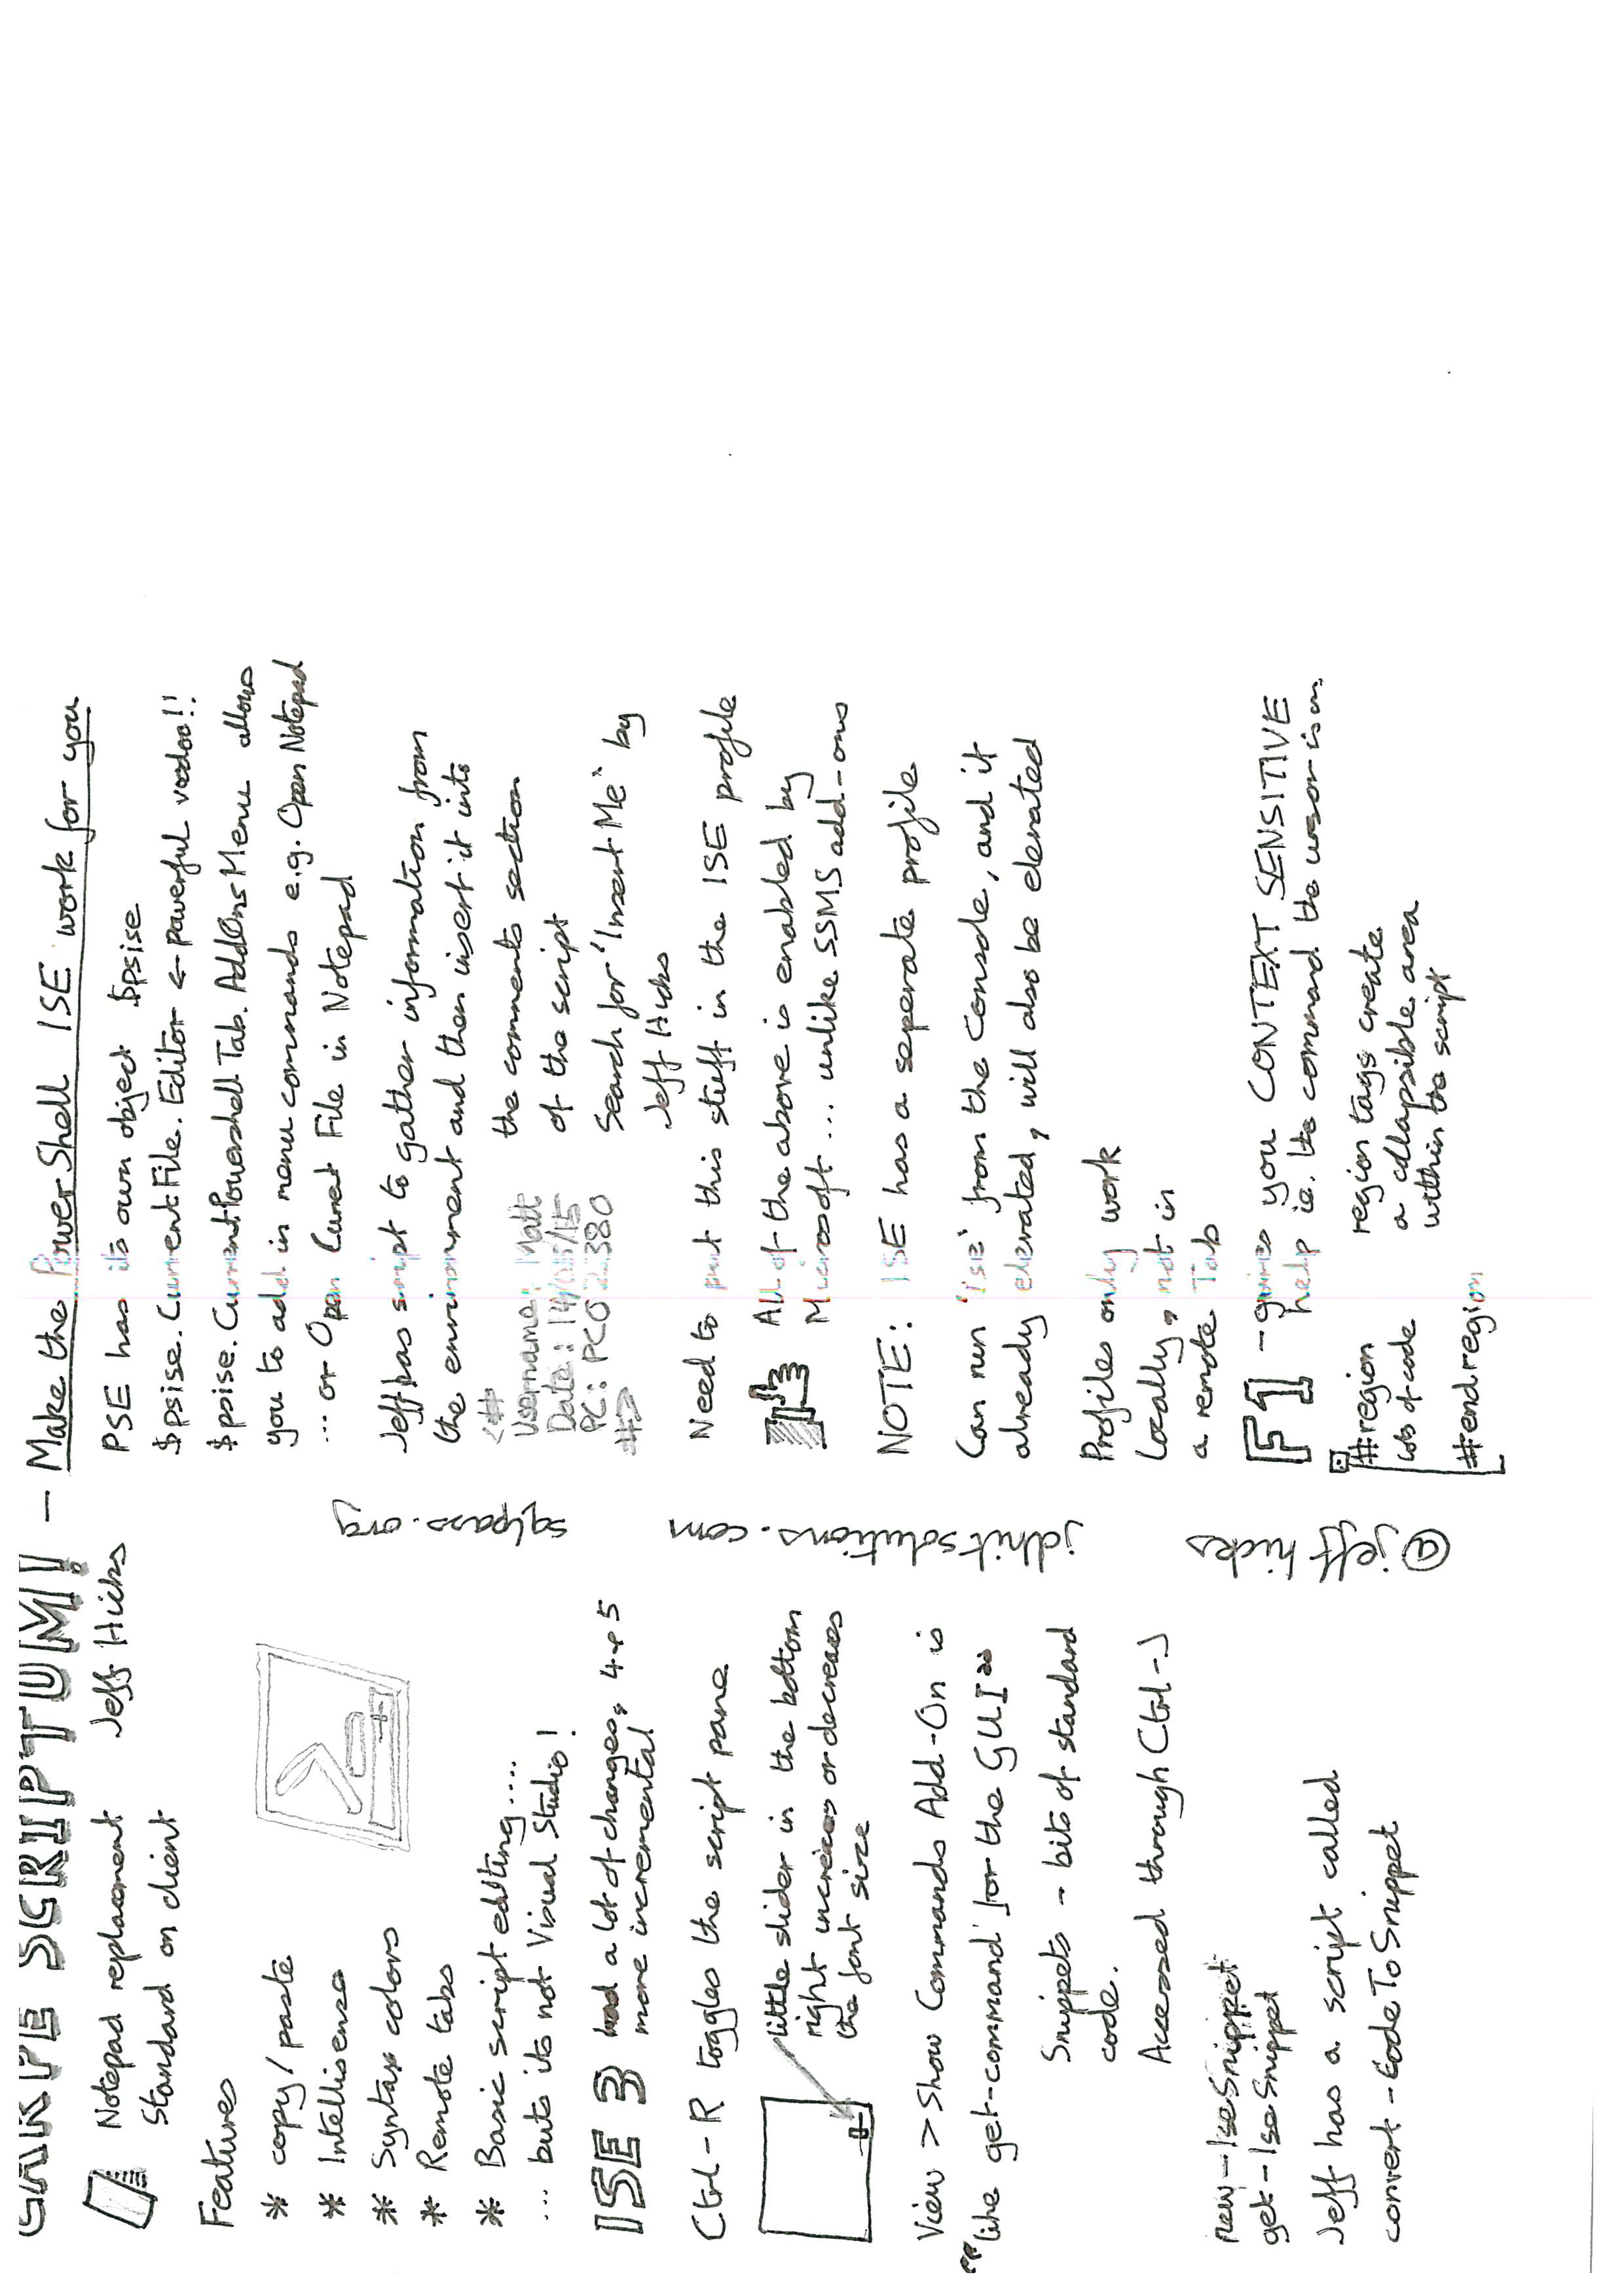 CARPE SCRIPTUM! - Make the PowerShell ISE work for you
Notepad replacement
Standard on client
Jeff Hicks
Features
* copy / paste
* Intellisense
* Syntax colors
* Remote tabs
* Basic script editing ....
... buts its not Visual Studio!
ISE 3 had a lot of changes, 4 & 5
more incremental
Ctrl-R toggles the script pane
little slider in the bottom
right increases or decreases
the font size
View > Show Commands Add-On is
"like get-command for the GUI"
Snippets - bits of standard
code.
Accessed through Ctrl-J
new-IseSnippet
get-IseSnippet
Jeff has a script called
convert-CodeToSnippet
@jeffhicks jdhitsolutions.com sqlpass.org
PSE has its own object $psise
$psise.CurrentFile.Editor ← powerful voodoo!!
$psise.CurrentPowershellTab.AddOnsMenu allows
you to add in menu commands e.g. Open Notepad
... or Open Curent File in Notepad
Jeff has script to gather information from
the environment and then insert it into
the comments section
of the script
<#
Username: Matt
Date: 14/05/15
PC: PC02380
#>
Search for 'Insert Me' by
Jeff Hicks
Need to put this stuff in the ISE profile
All of the above is enabled by
Microsoft ... unlike SSMS add-ons
NOTE: ISE has a seperate profile
Can run 'ise' from the console, and if
already elevated, will also be elevated
Profiles only work
locally, not in
a remote Tab
F1 - gives you CONTEXT SENSITIVE
help ie. the command the cursor is on.
#region
lots of code
#endregion
region tags create
a collapsible area
within the script